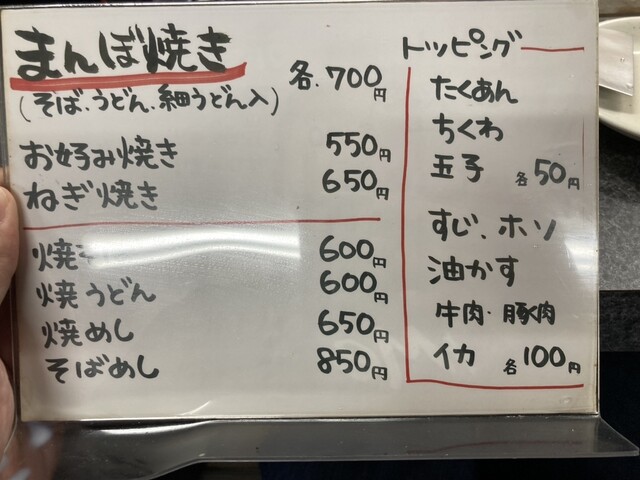 まんぼ焼き
(そば、うどん、細うどん入) 各.700円
お好み焼き 550円
ねぎ焼き 650円
焼 600円
焼うどん 600円
焼めし 650円
そばめし 850円
トッピング
たくあん
ちくわ
玉子 各50円
すじ、ホソ
油かす
牛肉・豚肉
イカ 各100円